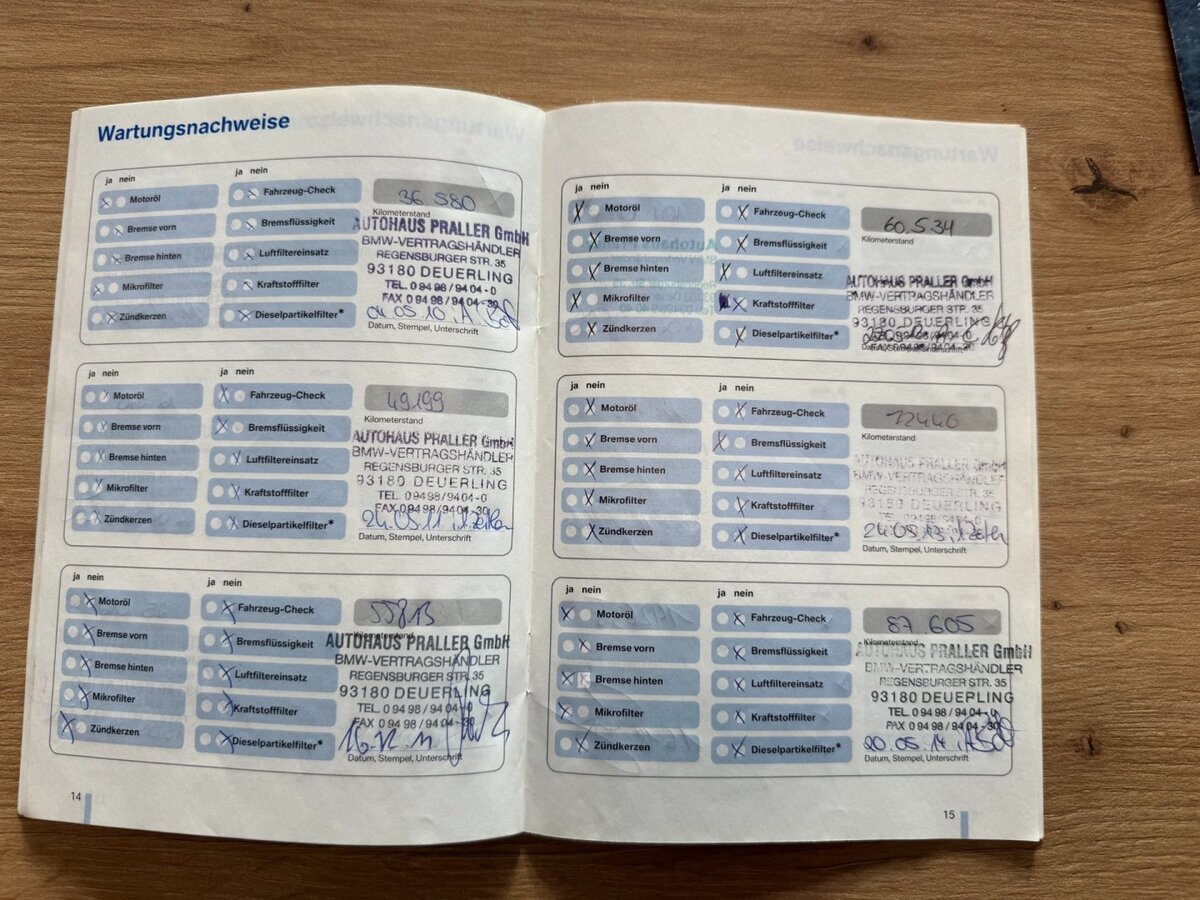 Wartungsnachweise
ja nein
ja nein
Motoröl
Fahrzeug-Check
36.580
Bremse vorn
Bremsflüssigkeit
Kilometerstand
Bremse hinten
Luftfiltereinsatz
Mikrofilter
Kraftstofffilter
Zündkerzen
Dieselpartikelfilter*
AUTOHAUS PRALLER GmbH
BMW-VERTRAGSHÄNDLER
REGENSBURGER STR. 35
93180 DEUERLING
TEL. 0 94 98 / 94 04 - 0
FAX 0 94 98 / 94 04 - 30
04.05.10
Datum, Stempel, Unterschrift
ja nein
ja nein
Motoröl
Fahrzeug-Check
49199
Bremse vorn
Bremsflüssigkeit
Kilometerstand
Bremse hinten
Luftfiltereinsatz
Mikrofilter
Kraftstofffilter
Zündkerzen
Dieselpartikelfilter*
AUTOHAUS PRALLER GmbH
BMW-VERTRAGSHÄNDLER
REGENSBURGER STR. 35
93180 DEUERLING
TEL. 0 94 98 / 94 04 - 0
FAX 0 94 98 / 94 04 - 30
24.05.11
Datum, Stempel, Unterschrift
ja nein
ja nein
Motoröl
Fahrzeug-Check
55813
Bremse vorn
Bremsflüssigkeit
Kilometerstand
Bremse hinten
Luftfiltereinsatz
Mikrofilter
Kraftstofffilter
Zündkerzen
Dieselpartikelfilter*
AUTOHAUS PRALLER GmbH
BMW-VERTRAGSHÄNDLER
REGENSBURGER STR. 35
93180 DEUERLING
TEL. 0 94 98 / 94 04 - 0
FAX 0 94 98 / 94 04 - 30
16.12.11
Datum, Stempel, Unterschrift
14
ja nein
ja nein
Motoröl
Fahrzeug-Check
60.534
Bremse vorn
Bremsflüssigkeit
Kilometerstand
Bremse hinten
Luftfiltereinsatz
Mikrofilter
Kraftstofffilter
Zündkerzen
Dieselpartikelfilter*
AUTOHAUS PRALLER GmbH
BMW-VERTRAGSHÄNDLER
REGENSBURGER STR. 35
93180 DEUERLING
ja nein
ja nein
Motoröl
Fahrzeug-Check
72446
Bremse vorn
Bremsflüssigkeit
Kilometerstand
Bremse hinten
Luftfiltereinsatz
Mikrofilter
Kraftstofffilter
Zündkerzen
Dieselpartikelfilter*
AUTOHAUS PRALLER GmbH
BMW-VERTRAGSHÄNDLER
REGENSBURGER STR. 35
93180 DEUERLING
24.05.13
Datum, Stempel, Unterschrift
ja nein
ja nein
Motoröl
Fahrzeug-Check
87.605
Bremse vorn
Bremsflüssigkeit
Kilometerstand
Bremse hinten
Luftfiltereinsatz
Mikrofilter
Kraftstofffilter
Zündkerzen
Dieselpartikelfilter*
AUTOHAUS PRALLER GmbH
BMW-VERTRAGSHÄNDLER
REGENSBURGER STR. 35
93180 DEUERLING
TEL. 0 94 98 / 94 04 - 0
FAX 0 94 98 / 94 04 - 30
20.05.14
Datum, Stempel, Unterschrift
15